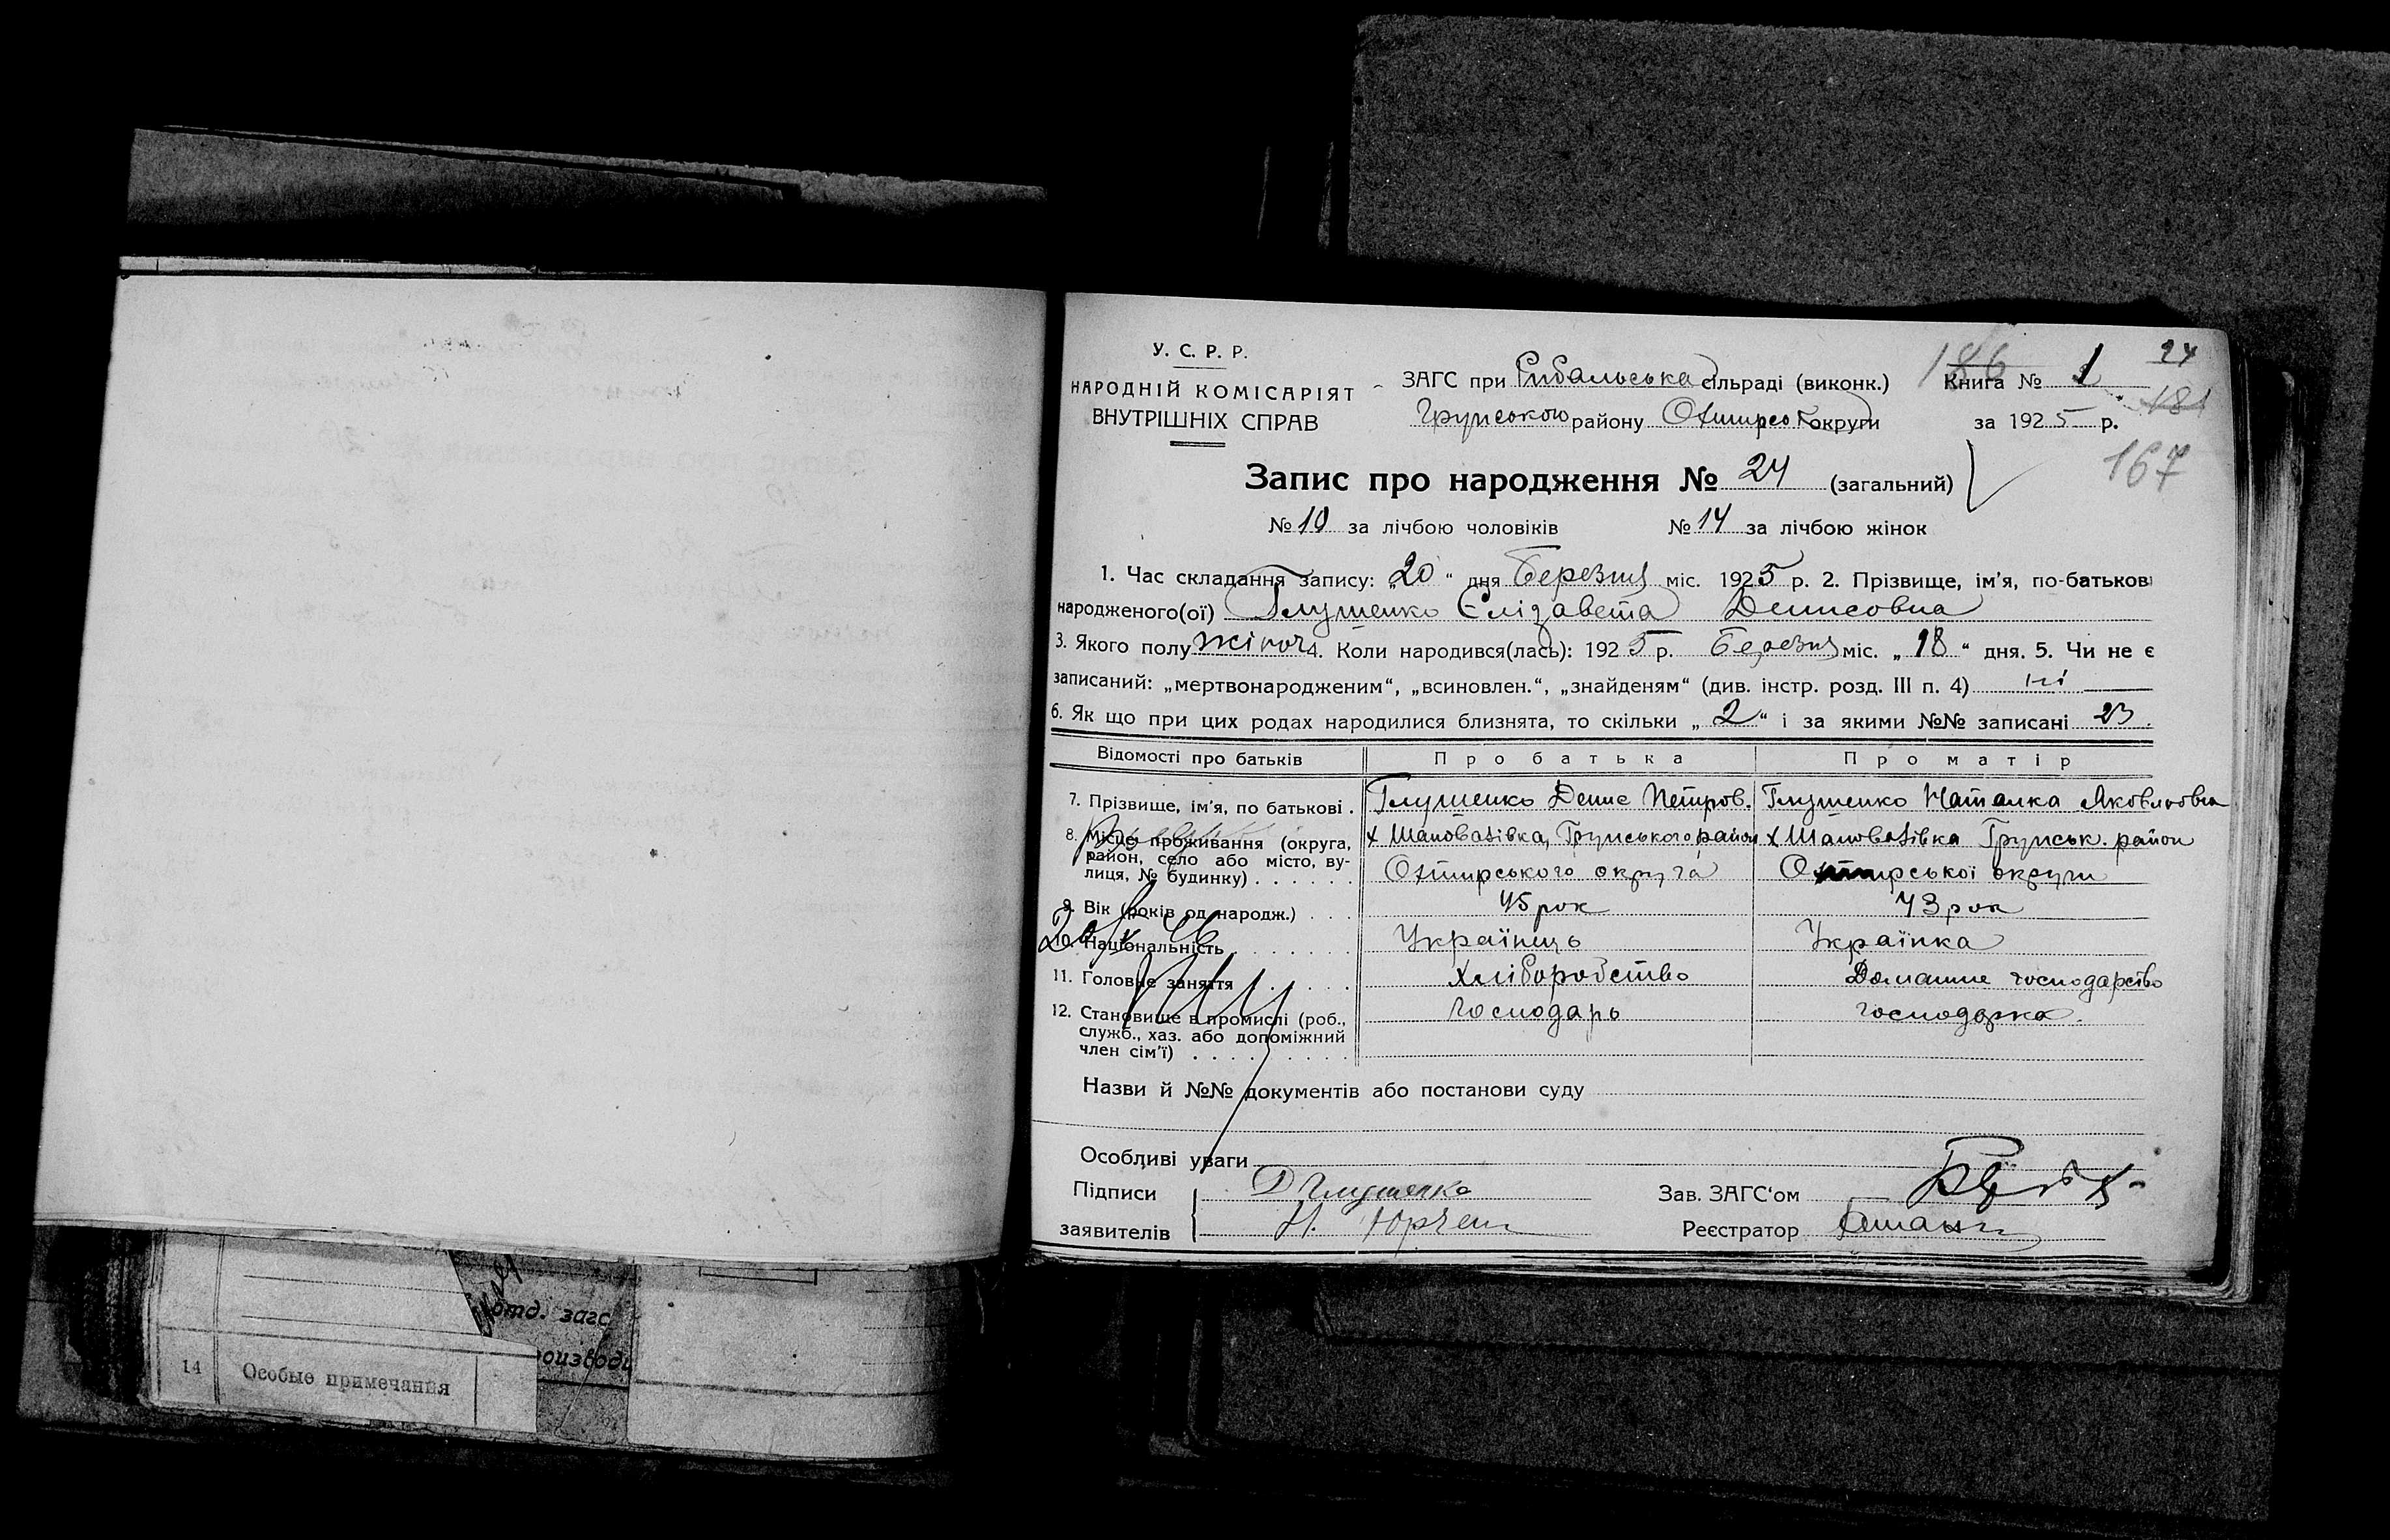 У. С. Р. Р.
НАРОДНІЙ КОМІСАРІЯТ
ВНУТРІШНІХ СПРАВ
ЗАГС при Рибальська сільраді (виконк.)
Грунською району Охтирсо округи
186
Книга № 1
24
181
за 1925 р.
167
Запис про народження № 24 (загальний)
№ 10 за лічбою чоловіків № 14 за лічбою жінок
1. Час складання запису: „20“ дня Березня міс. 1925 р. 2. Прізвище, ім’я, по-батькові
народженого(ої) Глушенко Єлізавета Денисовна
3. Якого полу жіноч 4. Коли народився(лась): 1925 р. Березня міс. „18“ дня. 5. Чи не є
записаний: „мертвонародженим“, „всиновлен.“, „знайденям“ (див. інстр. розд. III п. 4) ні
6. Як що при цих родах народилися близнята, то скільки „2“ і за якими №№ записані 23.
Відомості про батьків Про батька Про матір
7. Прізвище, ім’я, по батькові . Глушенко Денис Петров. Глушенко Наталка Яковловна
8. Місце проживання (округа, х Шаповалівка, Грунського район х Шаповалівка Грунськ. район
район, село або місто, ву-
лиця, № будинку) . . . . . . Охтирського округа Охтирської округи
9. Вік (років од народж.) . . . 45 рок 43 рок
10. Національність . . . . . . . Українець Українка
11. Головне заняття . . . . . . Хліборобство Домашнє господарство
12. Становище в промислі (роб., Господарь господарка.
служб., хаз. або допоміжний
член сім’ї) . . . . . . . . .
Назви й №№ документів або постанови суду
Особливі уваги
Підписи
заявителів
Д Глушенко
Н. Юрчен
Зав. ЗАГС‘ом
Реєстратор
отд. загс
14 Особые примечания